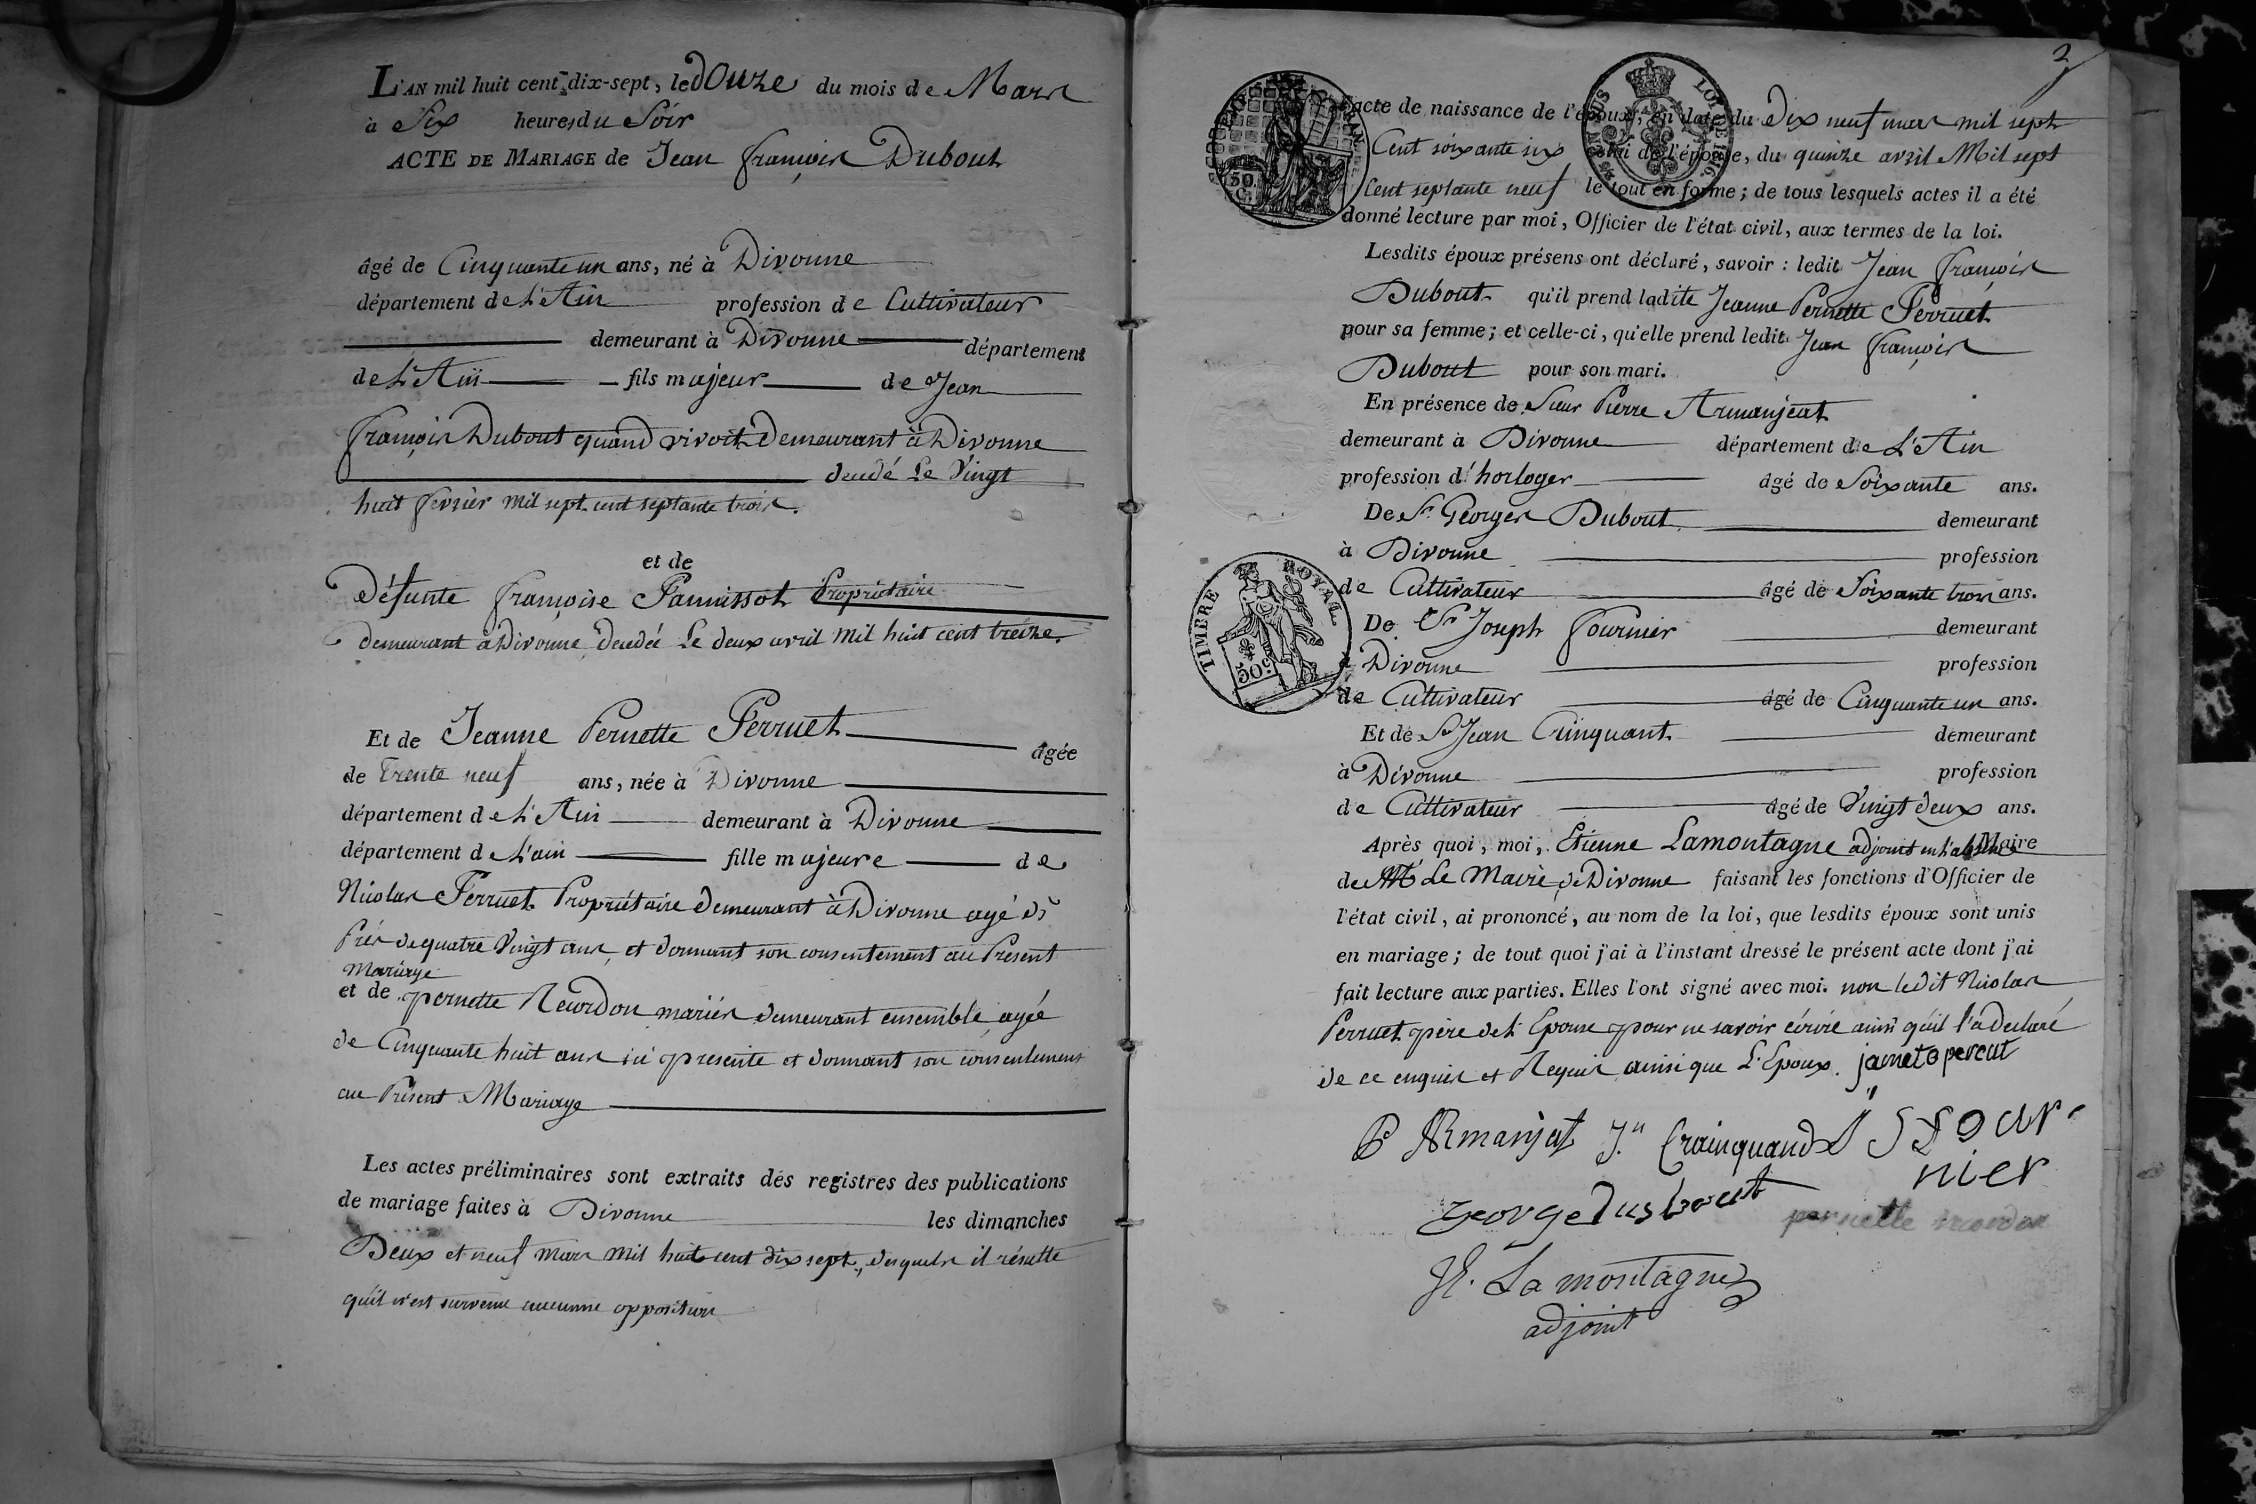 L'AN mil huit cent dix-sept, le douze du mois de Mars
à Six heures du Soir
ACTE DE MARIAGE de Jean François Dubout
âgé de Cinquante un ans, né à Divonne
département de L'Ain profession de Cultivateur
demeurant à Divonne département
de L'Ain fils majeur de Jean
François Dubout quand vivoit Demeurant à Divonne
decedé Le Vingt
huit fevrier mil sept cent septante trois.
et de
Défunte françoise Pannissot Propriétaire
demeurant à Divonne, Decedée Le deux avril mil huit cent treize.
Et de Jeanne Pernette Perruet agée
de Trente neuf ans, née à Divonne
département de L'Ain demeurant à Divonne
département de L'ain fille majeure de
Nicolas Perruet Propriétaire Demeurant à Divonne agé de
Près de quatre Vingt ans, et donnant son consentement au Présent
Mariage
et de pernette Reordon mariés demeurant ensemble agée
de Cinquante huit ans ici presente et donnant son consentement
au Présent Mariage
Les actes préliminaires sont extraits des registres des publications
de mariage faites à Divonne les dimanches
Deux et neuf Mars mil huit cent dix sept, desquels il résulte
qu'il n'est survenu aucunne opposition
2
l'acte de naissance de l'époux, en date du Dix neuf mars mil sept
Cent soixante six celui de l'épouse, du quinze avril Mil sept
Cent septante neuf le tout en forme; de tous lesquels actes il a été
donné lecture par moi, Officier de l'état civil, aux termes de la loi.
Lesdits époux présens ont déclaré, savoir : ledit Jean François
Dubout qu'il prend ladite Jeanne Pernette Perruet
pour sa femme; et celle-ci, qu'elle prend ledit Jean François
Dubout pour son mari.
En présence de Sieur Pierre Armanjeat
demeurant à Divonne département de L'Ain
profession d'horloger âgé de Soixante ans.
De Sr. Georges Dubout demeurant
à Divonne profession
de Cultivateur âgé de Soixante trois ans.
De Sr Joseph Fournier demeurant
à Divonne profession
de Cultivateur âgé de Cinquante un ans.
Et de Sr Jean Crinquant demeurant
à Divonne profession
de Cultivateur âgé de Vingt deux ans.
Après quoi, moi, Etienne Lamontagne adjoint en l'absence Maire
de Mr Le Maire de Divonne faisant les fonctions d'Officier de
l'état civil, ai prononcé, au nom de la loi, que lesdits époux sont unis
en mariage; de tout quoi j'ai à l'instant dressé le présent acte dont j'ai
fait lecture aux parties. Elles l'ont signé avec moi. non ledit Nicolas
Perruet père de L'Epouse pour ne savoir écrire ainsi qu'il l'a declaré
de ce enquis et Requis ainsi que L'Epoux.
P ARmanjat Jn Crainquand Fournier
George Dusbout pernette
Lamontagne
adjoint
TIMBRE ROYAL
50 c.
LOI DE 1816.